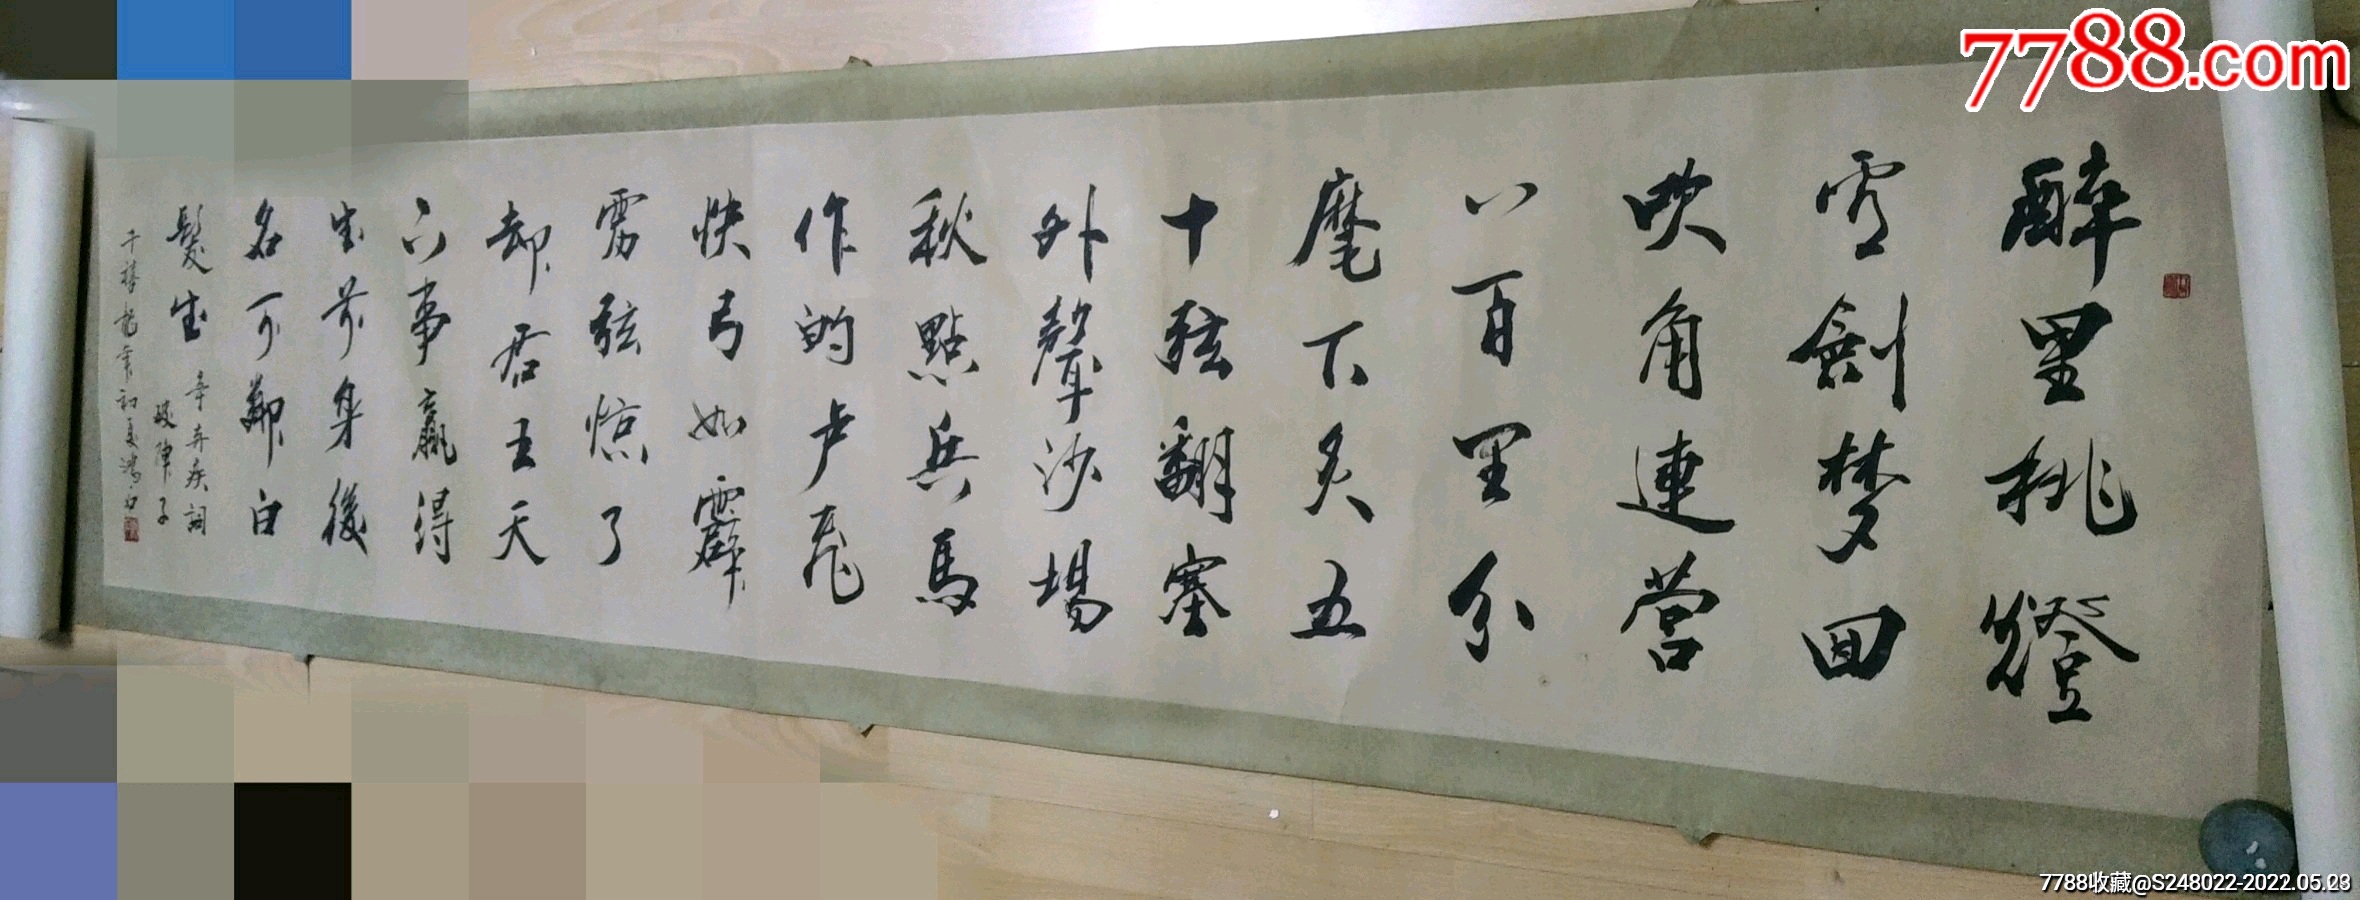 醉里挑燈
看劍梦回
吹角連营
八百里分
麾下炙五
十弦翻塞
外聲沙場
秋點兵馬
作的卢飛
快弓如霹
雳弦惊了
却君王天
下事赢得
生前身後
名可憐白
髮生 辛弃疾詞
破陣子
千禧龍年初夏
7788.com
7788收藏@S248022-2022.05.23